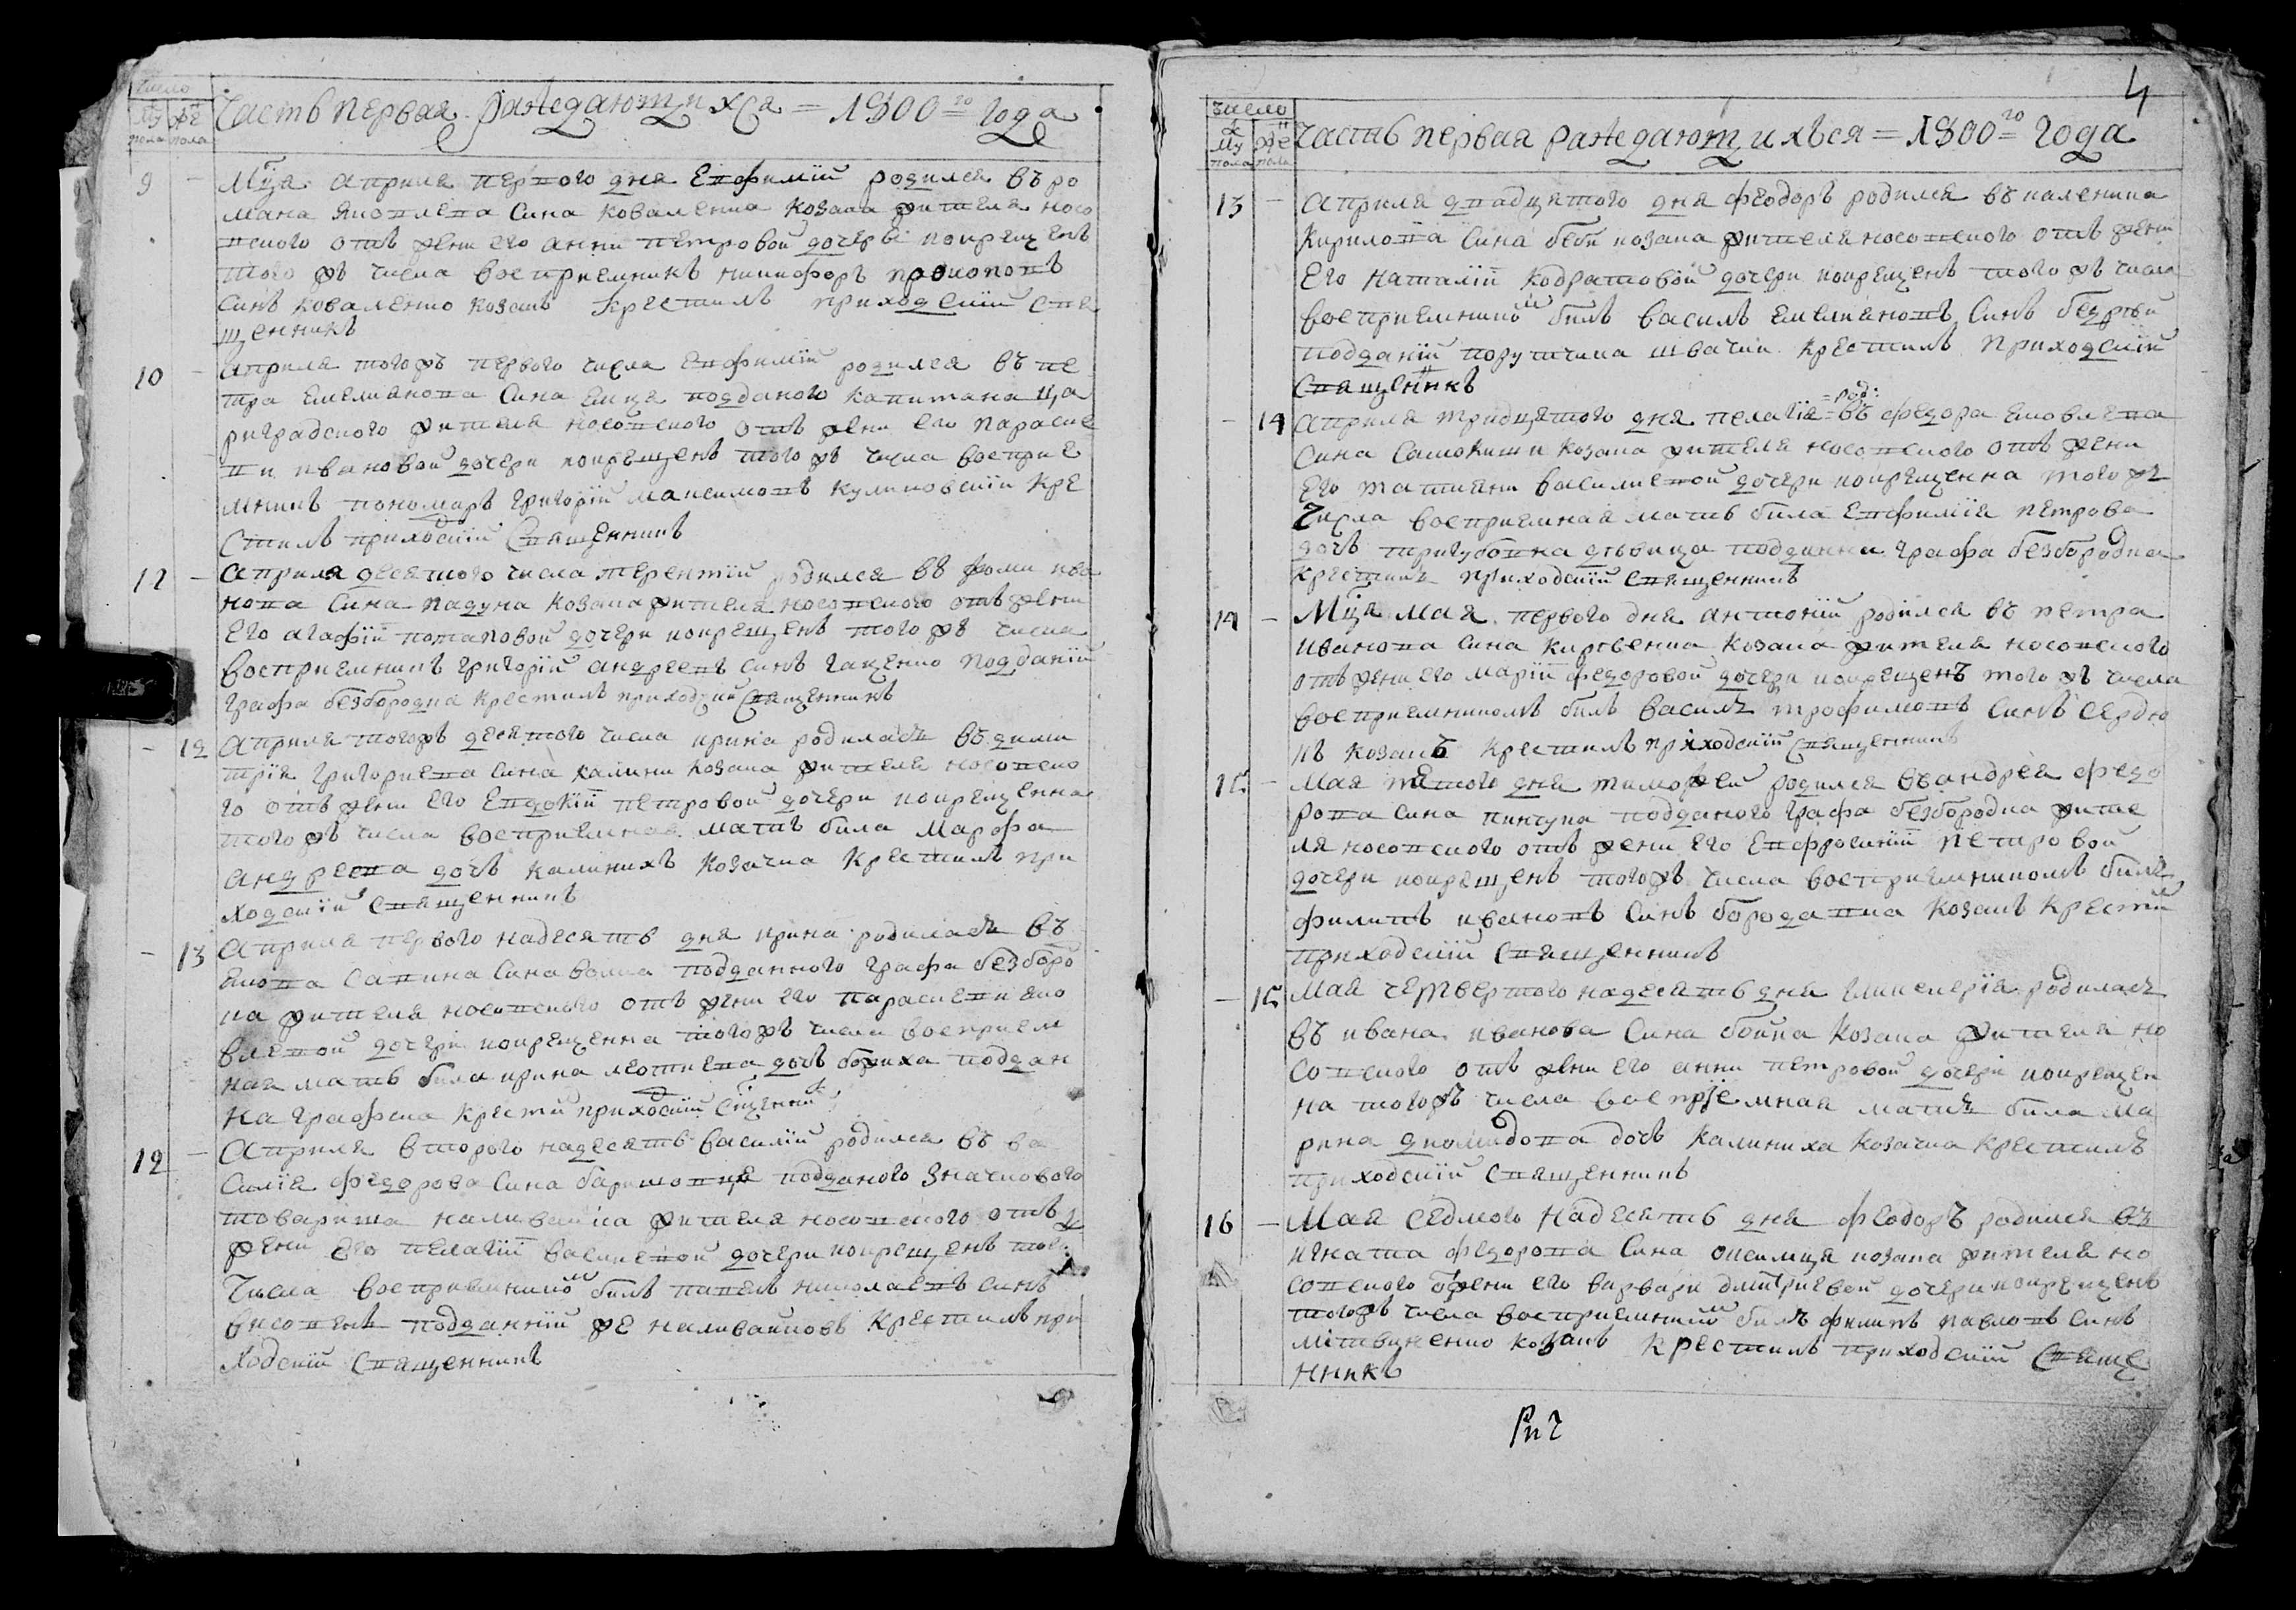 число
му же
пола пола
Часть первая раждающихся = 1800го года
9 – Мца априля первого дня Евфимий родился въ ро
мана яковлева сина коваленка козака жителя носо
вского отъ жени его анни петровой дочери покрещенъ
того жъ числа восприемникъ никифоръ прокоповъ
синъ коваленко козакъ крестилъ приходский свя
щенникъ
10 – априля того жъ первого числа Евфимий родился въ пе
тра емелиянова сина емця подданого капитана ца
риградского жителя носовского отъ жени его параске
ви ивановой дочери покрещенъ того жъ числа восприе
мникъ пономаръ григорий максимовъ куликовский кре
стилъ приходский священникъ
12 – априля десятого числа терентий родился въ фоми ива
нова сина падуна козака жителя носовского отъ жени
его агафии потаповой дочери покрещенъ того жъ числа
восприемникъ григорий андреевъ синъ гаценко подданий
графа безбородка крестилъ приходский священникъ
– 12 априля того жъ десятого числа ирина родиласъ въ дими
трия григориева сина калини козака жителя носовско
го отъ жени его Евдокии петровой дочери покрещенна
того жъ числа восприемная мать била марфа
андреева дочъ калинихъ козачка крестилъ при
ходский священникъ
– 13 априля первого надесять дня ирина родиласъ въ
якова савина сина волка подданного графа безборо
ка жителя носовского отъ жени его параскеви яко
влевой дочери покрещенна того жъ числа восприем
ная мать била ирина леотиева дочъ божиха поддан
на графска крести приходский сщенникъ
12 – априля второго надесять василий родился въ ва
силия федорова сина баришовця подданого значкового
товариша наливайка жителя носовского отъ
жени его пелагии василиевой дочери покрещенъ того
числа восприемником билъ павелъ николаевъ синъ
високенъ подданний же наливайковъ крестилъ при
ходский священникъ
4
число
му же
пола пола
Часть первая раждающихъся = 1800го года
13 – априля двадцятого дня феодоръ родился въ каленика
кирилова сина беби козака жителя носовского отъ жени
его наталии кодратовой дочери покрещенъ того жъ числа
восприемником билъ василъ емелияновъ синъ бедрий
подданий порутчика швачки крестилъ приходский
священикъ
– 14 априля тридцятого дня пелагия =род:= въ федора яковлева
сина самокиши козака жителя носовского отъ жени
его татияни василиевой дочери покрещенна того жъ
числа восприемная мать била Евфимия петрова
дочъ тригубовна дъвица подданна графа безбородка
крестилъ приходский священникъ
14 – Мця мая первого дня антоний родился въ петра
иванова сина кирвенка козака жителя носовского
отъ жени его марии федоровой дочери покрещенъ того жъ числа
восприемникомъ билъ василъ трофимовъ синъ сердю
къ козакъ крестилъ приходский священникъ
15 – мая пятого дня тимофей родился въ андрея федо
рова сина пинчука подданого графа безбородка жите
ля носовского отъ жени его Евфросинии петровой
дочери покрещенъ того жъ числа восприемникомъ билъ
филипъ ивановъ синъ бородавка козакъ крестил
приходский священникъ
– 15 мая четвертого надесять дня гликерия родиласъ
въ ивана иванова сина бойка козака жителя но
совского отъ жени его анни петровой дочери покрещен
на того жъ числа восприемная мать била ма
рина диомидова дочъ калиниха козачка крестилъ
приходский священникъ
16 – мая седмого надесять дня феодоръ родился въ
игната федорова сина онисимця козака жителя но
совского от жени его варвари дмитриевой дочери покрещенъ
того жъ числа восприемником билъ филипъ павловъ синъ
литвиненко козакъ крестилъ приходский священ
никъ